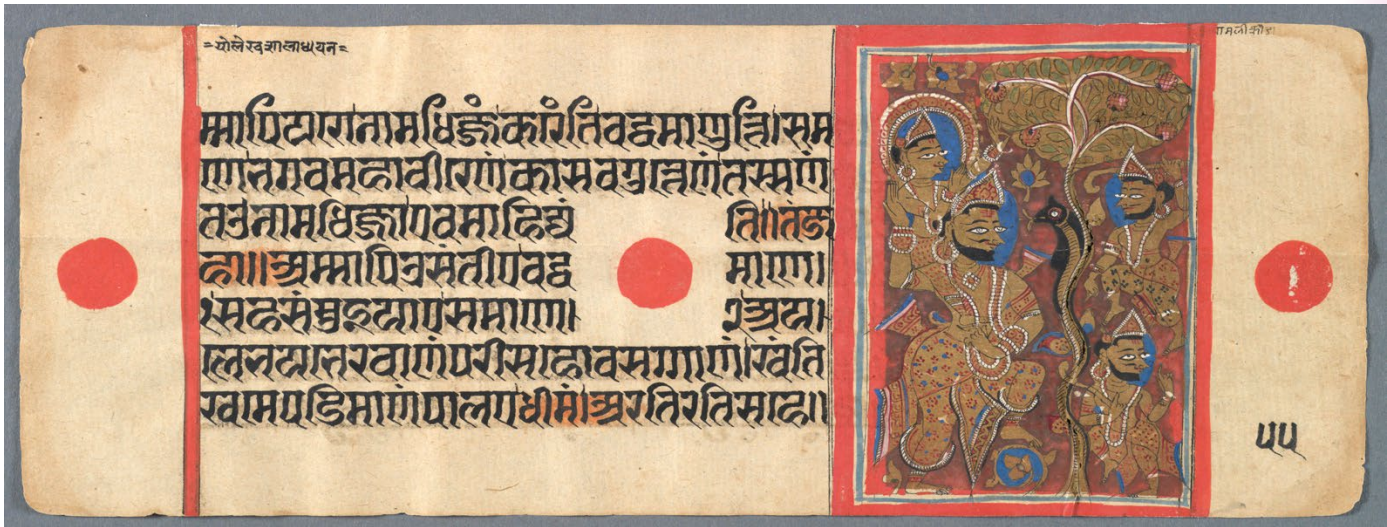 म्मापियरो नामधिज्जं करिंति वद्धमाणु त्ति। सम
णे भगवं महावीरे णं कासवगुत्तेणं तस्सणं
तउ नामधिज्जा एवमाहिज्जं ति॥ तं ज
हा॥ अम्मापिउसंतीए वद्ध माणे।
१ सहसंमुइयाए समणे। २ अय
ले भयभेरवाणं परीसहोवसग्गाणं। खंति
खमे पडिमाणं पालए धीमं। अरतिरतिसहे॥
५५